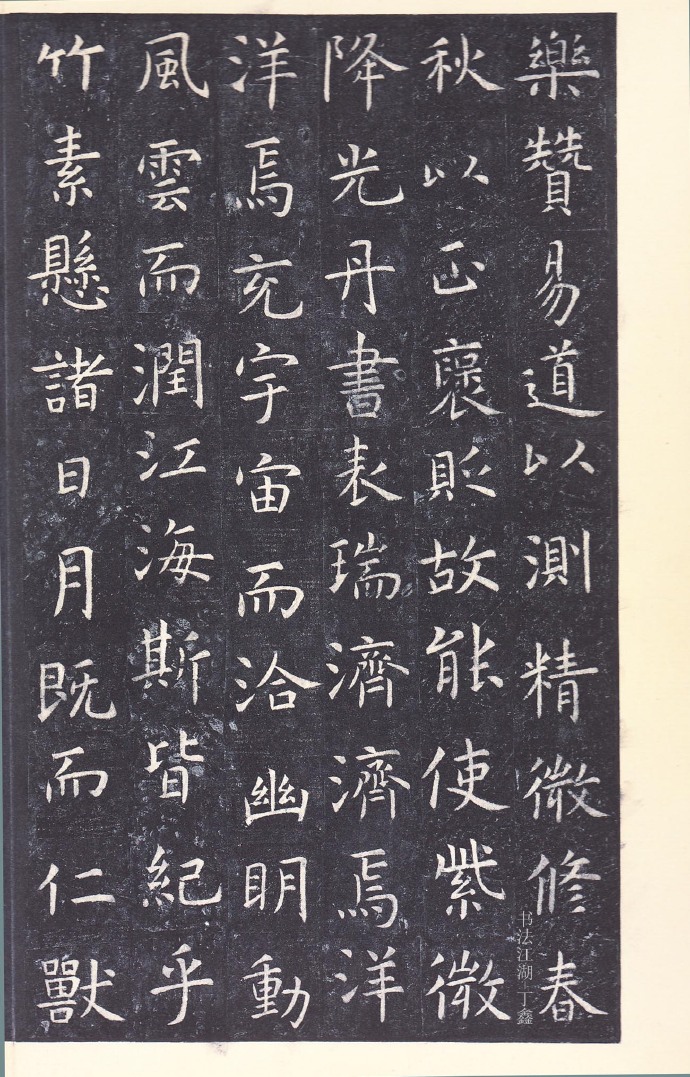 樂贊易道以測精微修春
秋以正褒貶故能使紫微
降光丹書表瑞濟濟焉洋
洋焉充宇宙而洽幽明動
風雲而潤江海斯皆紀乎
竹素懸諸日月既而仁獸
书法江湖 丁鑫